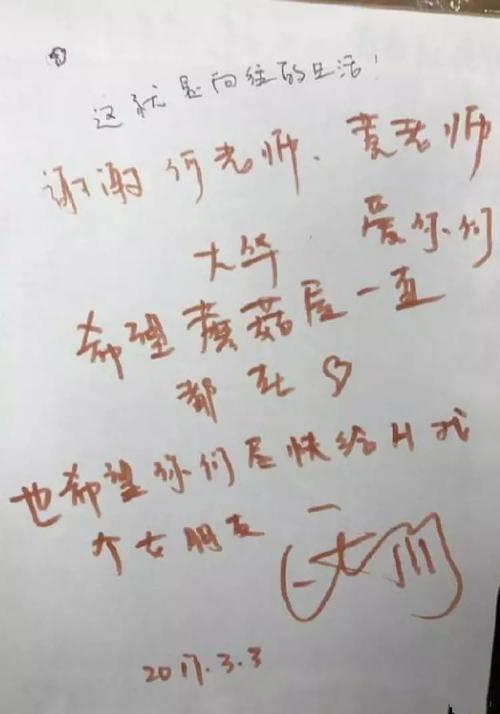 这就是向往的生活！
谢谢何老师、黄老师
大华 爱你们
希望蘑菇屋一直
都在♡
也希望你们尽快给H找
个女朋友
2017.3.3